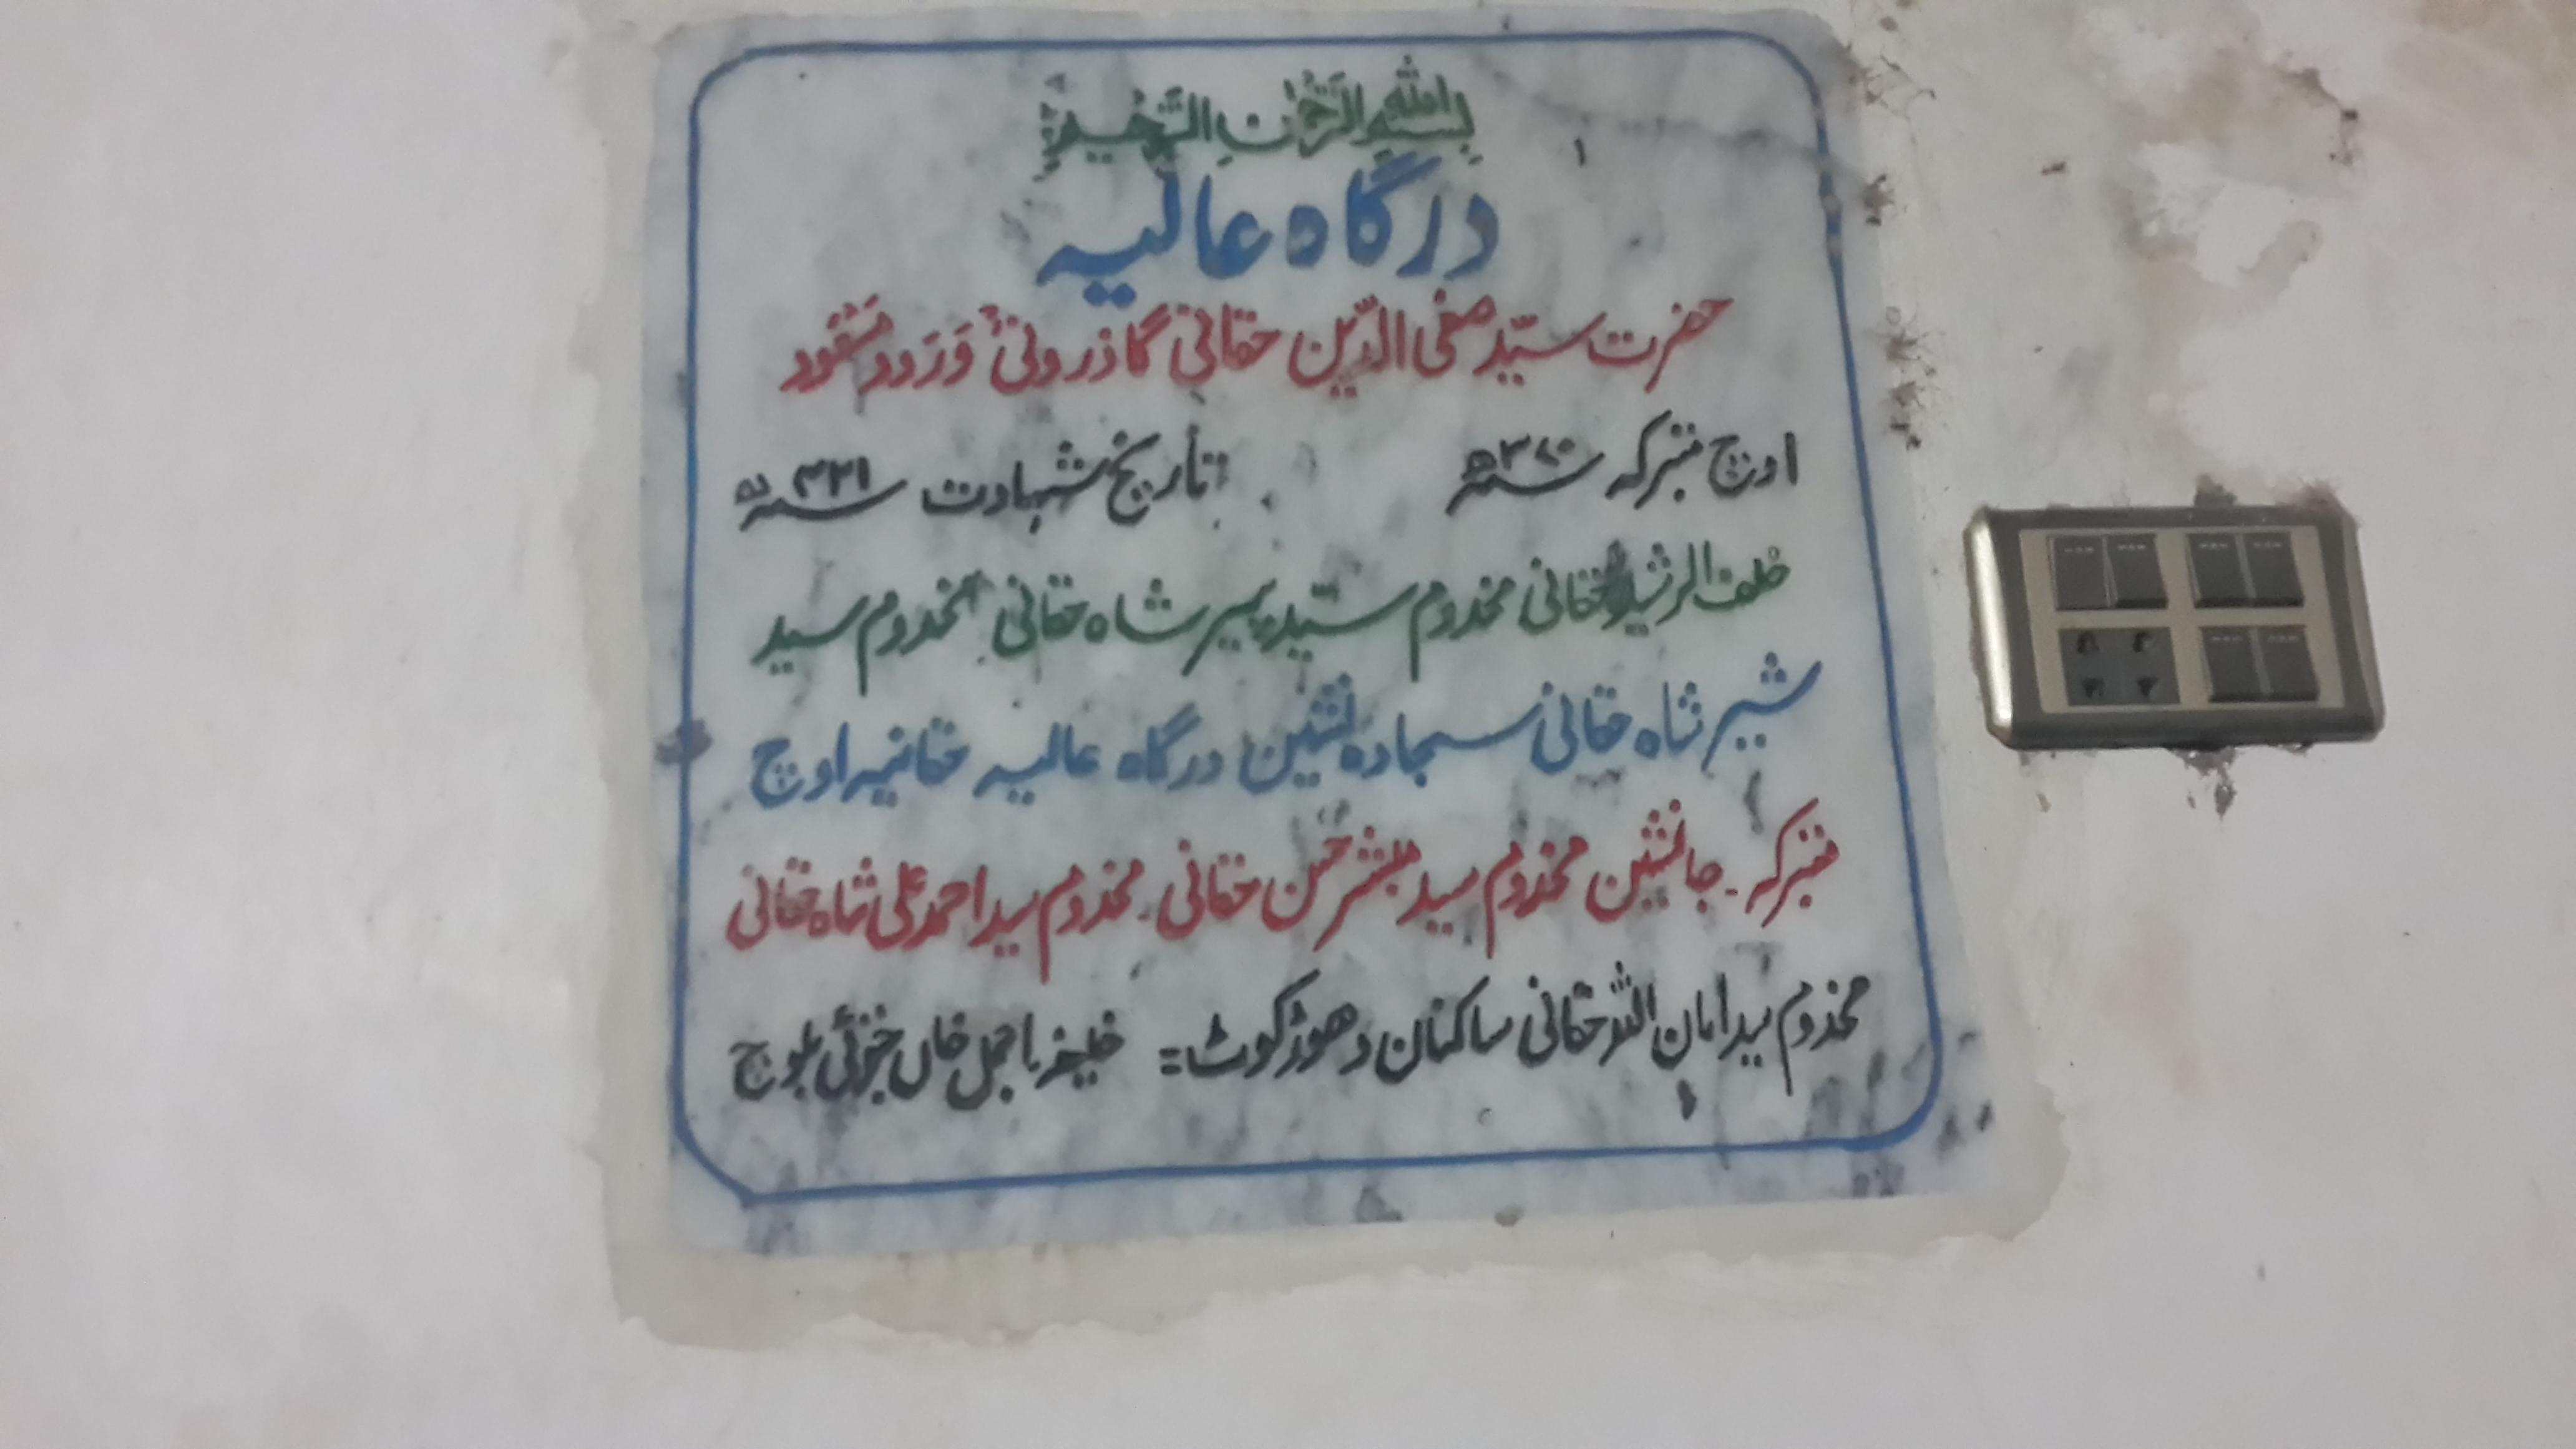 بِسْمِ اللهِ الرَّحْمٰنِ الرَّحِيْمِ
درگاہ عالیہ
حضرت سیّد صفی الدّین حقانی گاذرونیؒ وَرَود مَسْعُود
اوچ متبرکہ سنہ ۳۷۰ھ تاریخ شہادت سنہ
خلف الرشید حقانی مخدوم سیّد پیر شاہ حقانی مخدوم سید
شیر شاہ حقانی سجادہ نشین درگاہ عالیہ حقانیہ اوچ
متبرکہ ۔ جانشین مخدوم سید مبشر حسن حقانی ۔ مخدوم سید احمد علی شاہ حقانی
مخدوم سید امان اللہ حقانی ساکنان دھوڑکوٹ = خلیفہ اجمل خاں بلوچ